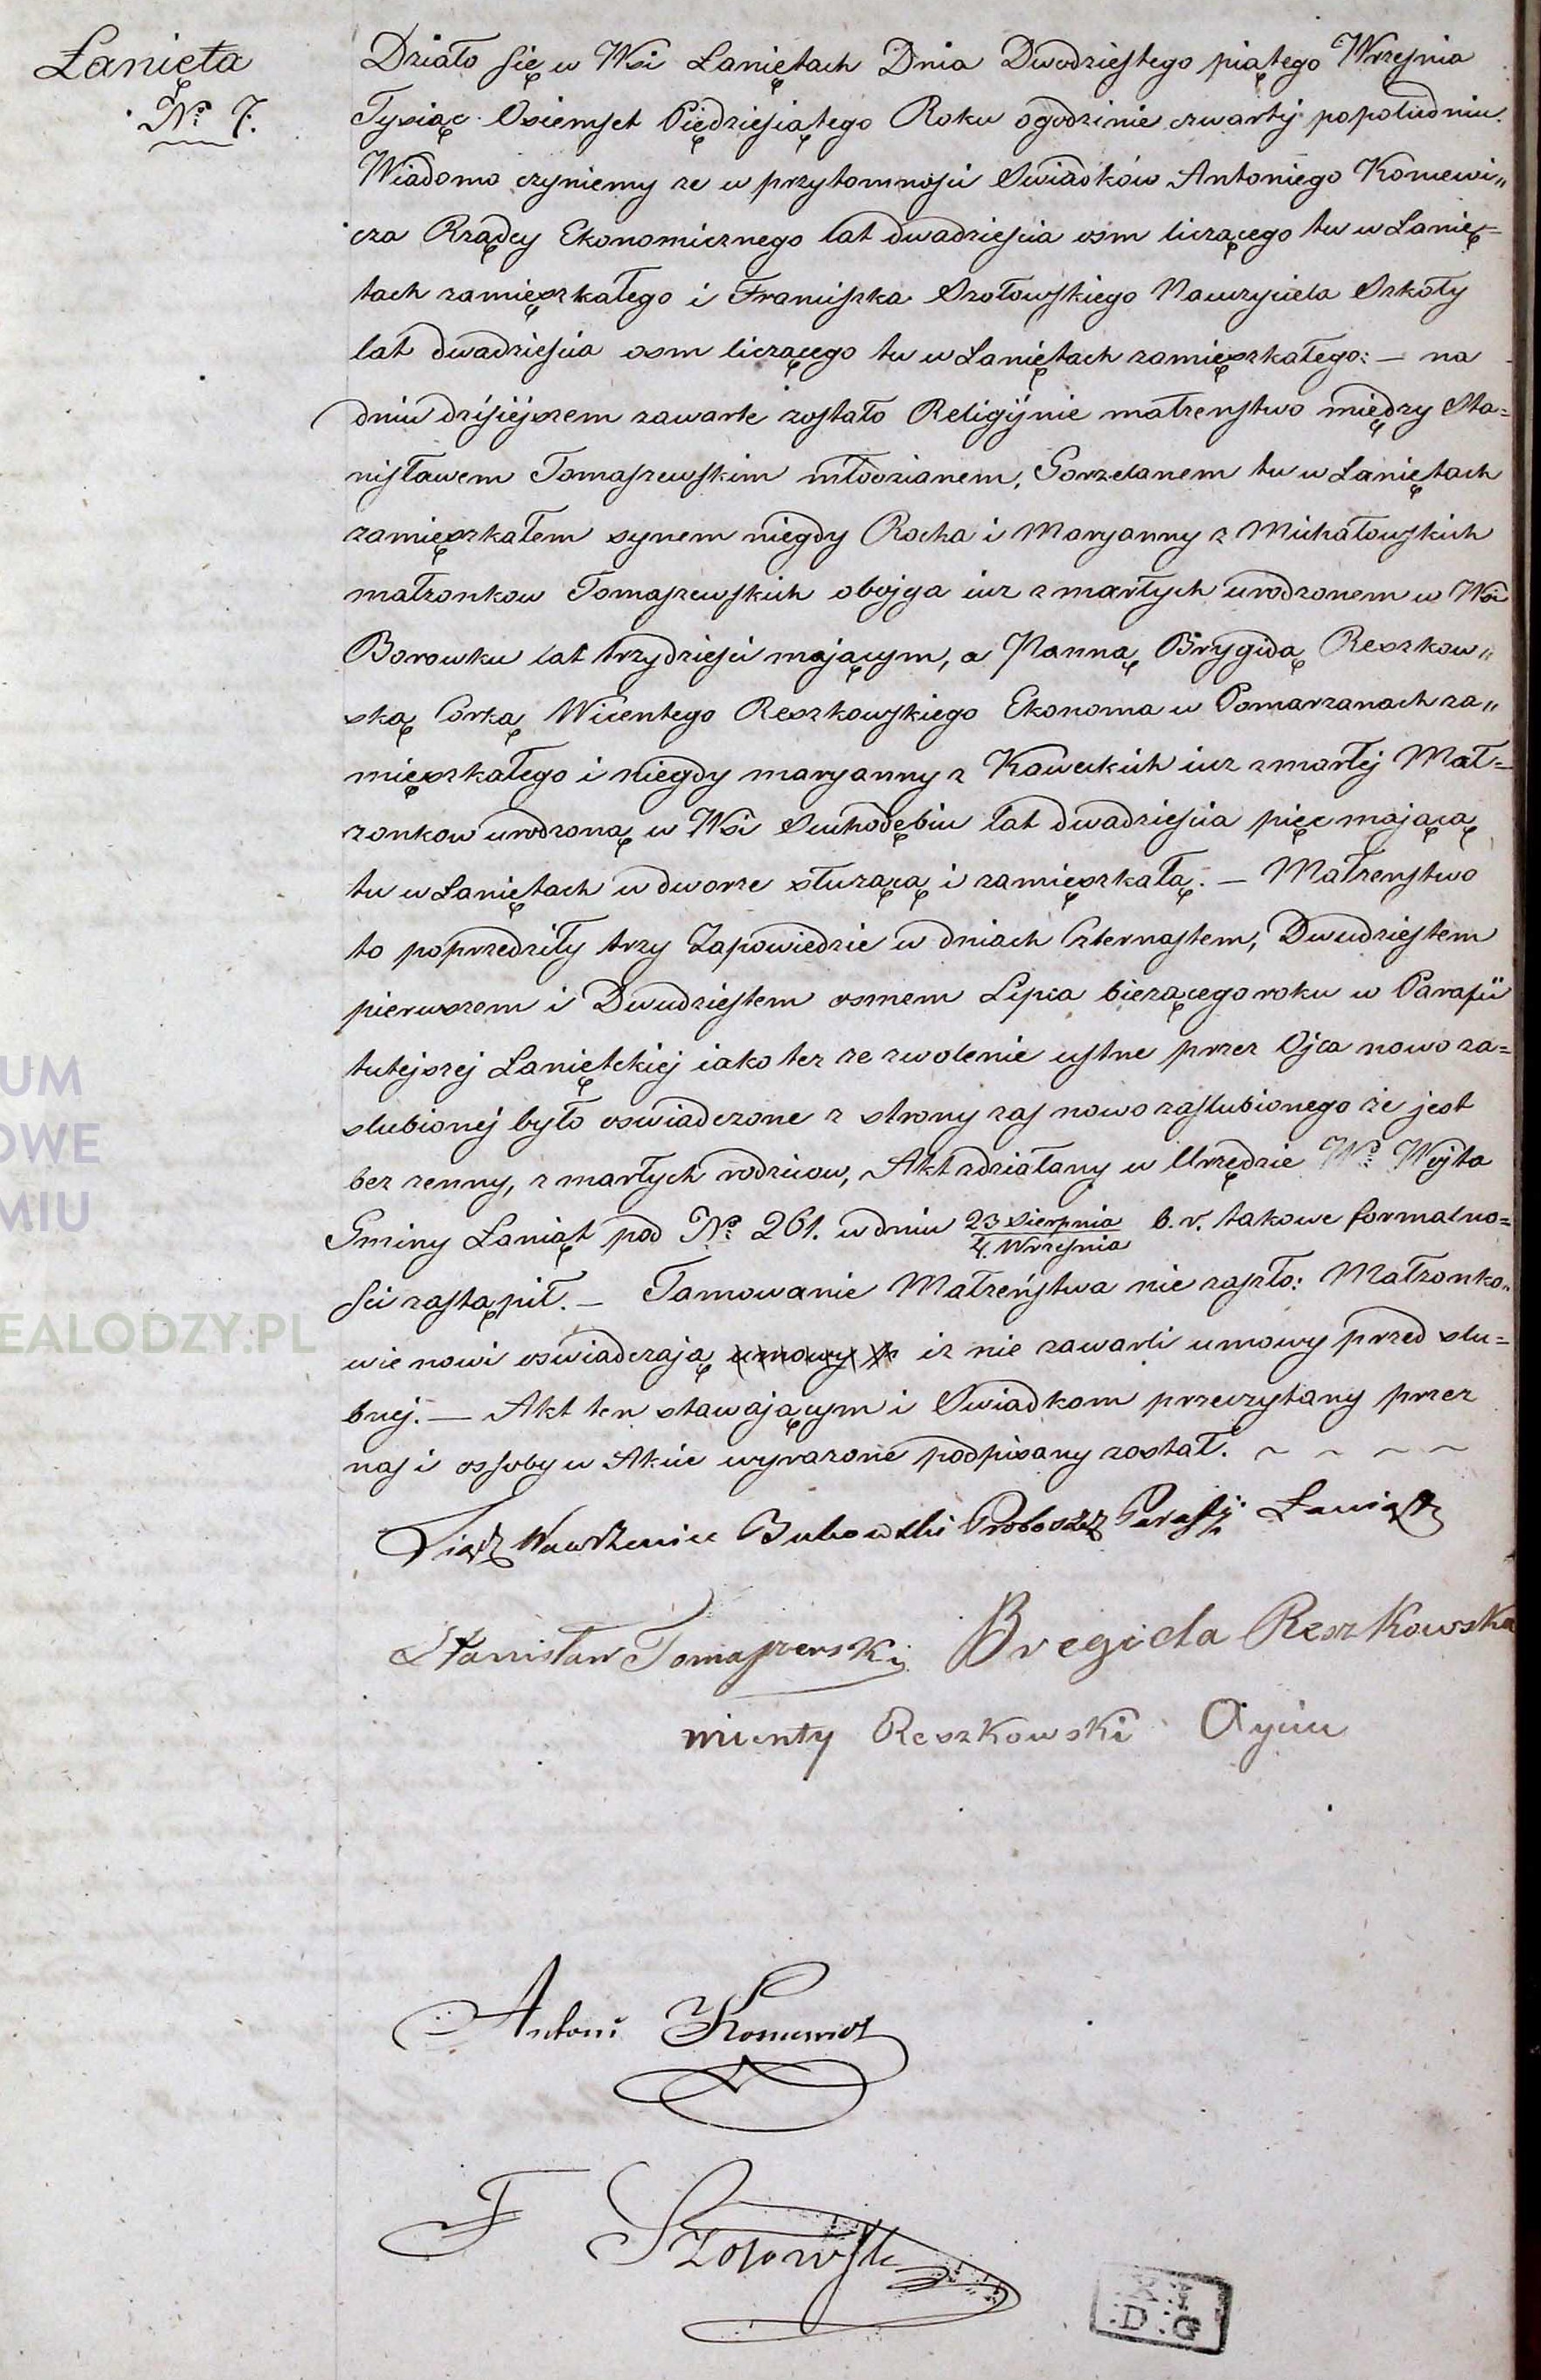 Łanięta
Nro 7.
Działo się w Wsi Łaniętach Dnia Dwudziestego piątego Września
Tysiąc Osiemset Piędziesiątego Roku ogodzinie czwartÿ popołudniu.
Wiadomo czyniemy ze w przytomności Swiadków Antoniego Koniewi„
cza Rządcy Ekonomicznego lat dwadzieścia osm liczącego tu w Łanię=
tach zamięszkałego i Franciszka Szołowskiego Nauczyciela Szkoły
lat dwadzieścia osm liczącego tu w Łaniętach zamięszkałego: — na
dniu dzisiejszem zawarte zostało Religijnie małzenstwo między Sta=
nisławem Tomaszewskim młodzianem, Gorzelanem tu w Łaniętach
zamięszkałem synem niegdy Rocha i Maryanny z Michałowskich
małzonkow Tomaszewskich obojga iuz zmarłych urodzonem w Wsi
Borowku lat trzydzieści mającym, a Panną Brygidą Reszkow„
ską Corką Wicentego Reszkowskiego Ekonoma w Pomarzanach za„
mięszkałego i niegdy maryanny z Kaweckich iuz zmarłej Mał=
zonkow urodzoną w Wsi Suchodębiu lat dwadzieścia pięc mającą
tu w Łaniętach w dworze słuzącą i zamięszkałą. — Małzenstwo
to poprzedziły trzy Zapowiedzie w dniach Czternastem, Dwudziestem
pierwszem i Dwudziestem osmem Lipca biezącego roku w Parafii
tutejszej Łanięckiej iako tez ze zwolenie ustne przez Ojca nowo za=
slubionej było oswiadczone z strony zas nowo zaslubionego ze jest
bez zenny, zmarłych rodzicow, Akt zdziałany w Urzędzie Wo Wojta
Gminy Łaniąt pod Nro 261. w dniu 23 Sierpnia b. r. takowe formalno=
4. Września
sci zastąpił. — Tamowanie Małzeństwa nie zaszło: Małzonko„
wie nowi oswiadczają umowy iz nie zawarli umowy przed slu=
bnej. — Akt ten stawającym i Swiadkom przeczytany przez
nas i ossoby w Akcie wyrazone podpisany został. ~ ~ ~ ~
Xiądz Wawrzeniec Bukowski Proboszcz Parafij Łaniąt
Stanisław Tomaszewski Bregida Reszkowska
Reszkowski
Antoni Koniewicz
F Szołowski
D. G
UM
OWE
MIU
EALODZY.PL